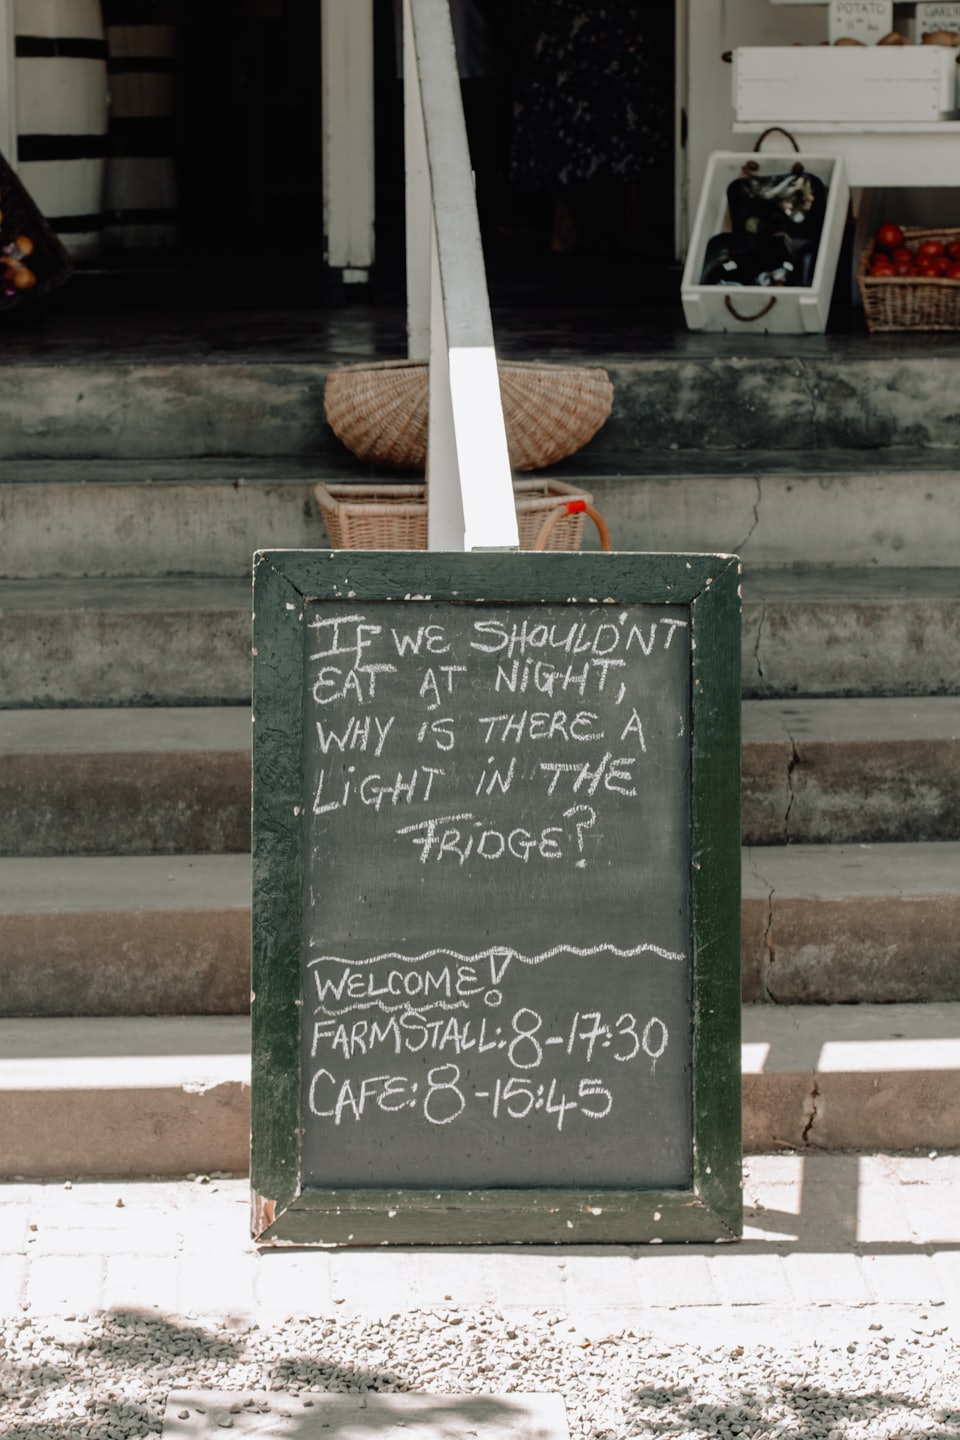 POTATO
GARLIC
IF WE SHOULD'NT
EAT AT NIGHT,
WHY IS THERE A
LIGHT IN THE
FRIDGE?
WELCOME!
FARMSTALL: 8-17:30
CAFE: 8-15:45